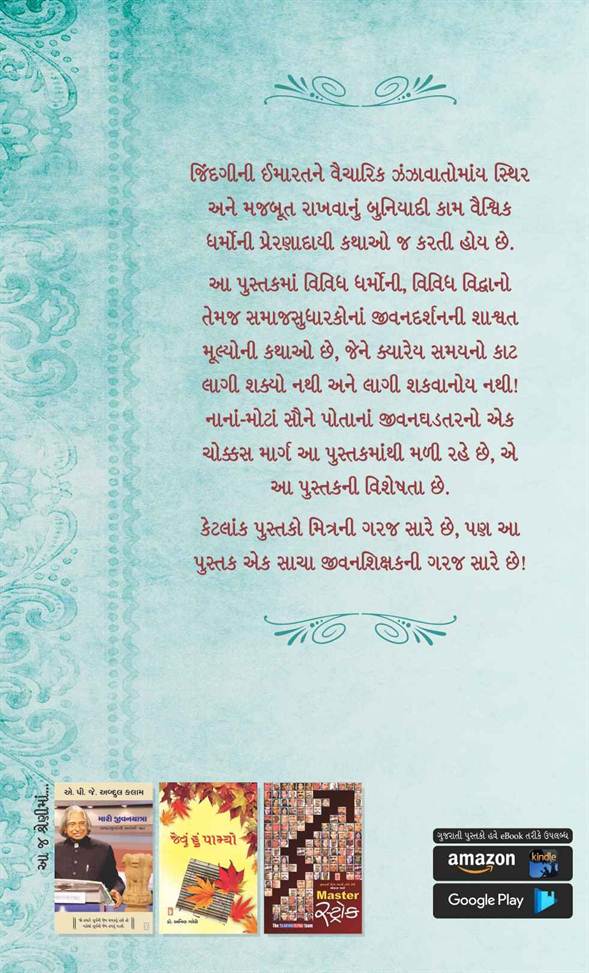 જિંદગીની ઈમારતને વૈચારિક ઝંઝાવાતોમાંય સ્થિર
અને મજબૂત રાખવાનું બુનિયાદી કામ વૈશ્વિક
ધર્મોની પ્રેરણાદાયી કથાઓ જ કરતી હોય છે.
આ પુસ્તકમાં વિવિધ ધર્મોની, વિવિધ વિદ્વાનો
તેમજ સમાજસુધારકોનાં જીવનદર્શનની શાશ્વત
મૂલ્યોની કથાઓ છે, જેને ક્યારેય સમયનો કાટ
લાગી શક્યો નથી અને લાગી શકવાનોય નથી!
નાનાં-મોટાં સૌને પોતાનાં જીવનઘડતરનો એક
ચોક્કસ માર્ગ આ પુસ્તકમાંથી મળી રહે છે, એ
આ પુસ્તકની વિશેષતા છે.
કેટલાંક પુસ્તકો મિત્રની ગરજ સારે છે, પણ આ
પુસ્તક એક સાચા જીવનશિક્ષકની ગરજ સારે છે!
આ જ શ્રેણીમાં...
એ. પી. જે. અબ્દુલ કલામ
મારી જીવનયાત્રા
જેવું હું પામ્યો
Master
સ્ટ્રોક
ગુજરાતી પુસ્તકો હવે eBook તરીકે ઉપલબ્ધ
amazon kindle
Google Play